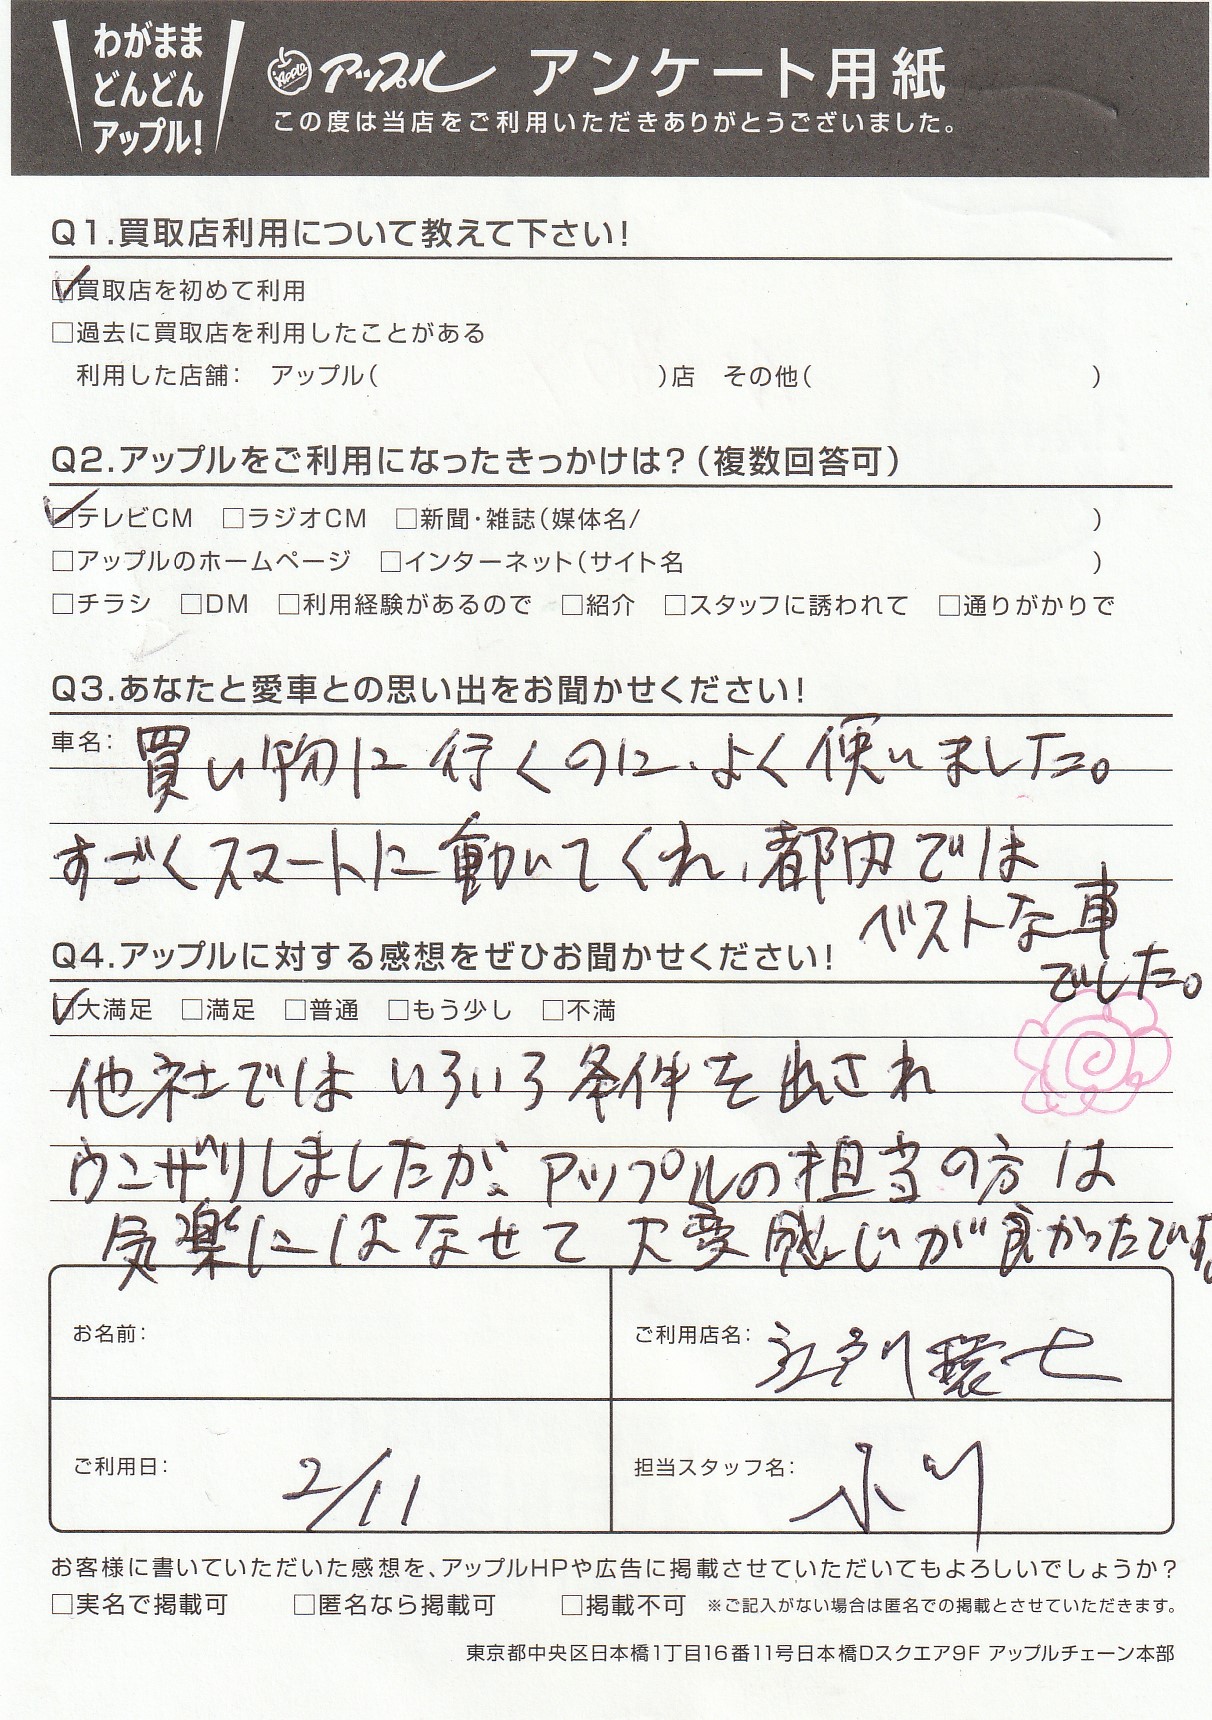 わがまま
どんどん
アップル!
Apple アップル アンケート用紙
この度は当店をご利用いただきありがとうございました。
Q1.買取店利用について教えて下さい!
☑買取店を初めて利用
□過去に買取店を利用したことがある
利用した店舗: アップル( )店 その他( )
Q2.アップルをご利用になったきっかけは?(複数回答可)
☑テレビCM □ラジオCM □新聞・雑誌(媒体名/ )
□アップルのホームページ □インターネット(サイト名 )
□チラシ □DM □利用経験があるので □紹介 □スタッフに誘われて □通りがかりで
Q3.あなたと愛車との思い出をお聞かせください!
車名: 買い物に行くのに、よく使いました。
すごくスマートに動いてくれ、都内では
ベストな車
でした。
Q4.アップルに対する感想をぜひお聞かせください!
☑大満足 □満足 □普通 □もう少し □不満
他社ではいろいろ条件を出され
ウンザリしましたが、アップルの担当の方は
気楽にはなせて大変感じが良かったです
お名前:
ご利用店名: 江戸川環七
ご利用日: 2/11
担当スタッフ名: 小川
お客様に書いていただいた感想を、アップルHPや広告に掲載させていただいてもよろしいでしょうか?
□実名で掲載可 □匿名なら掲載可 □掲載不可 ※ご記入がない場合は匿名での掲載とさせていただきます。
東京都中央区日本橋1丁目16番11号日本橋Dスクエア9F アップルチェーン本部